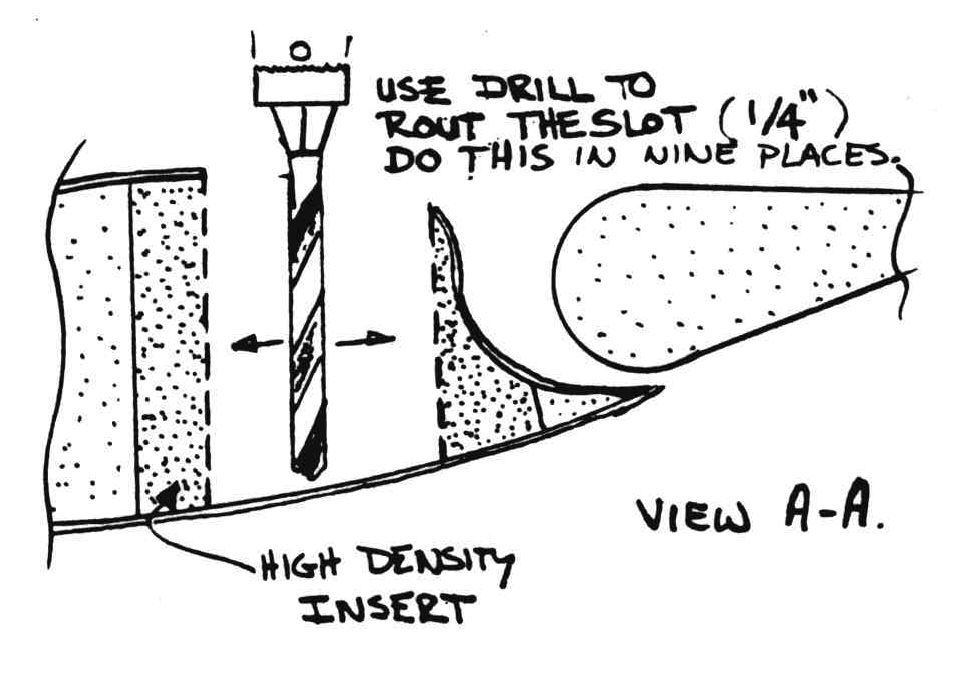 USE DRILL TO
ROUT THE SLOT (1/4")
DO THIS IN NINE PLACES.
VIEW A-A.
HIGH DENSITY
INSERT